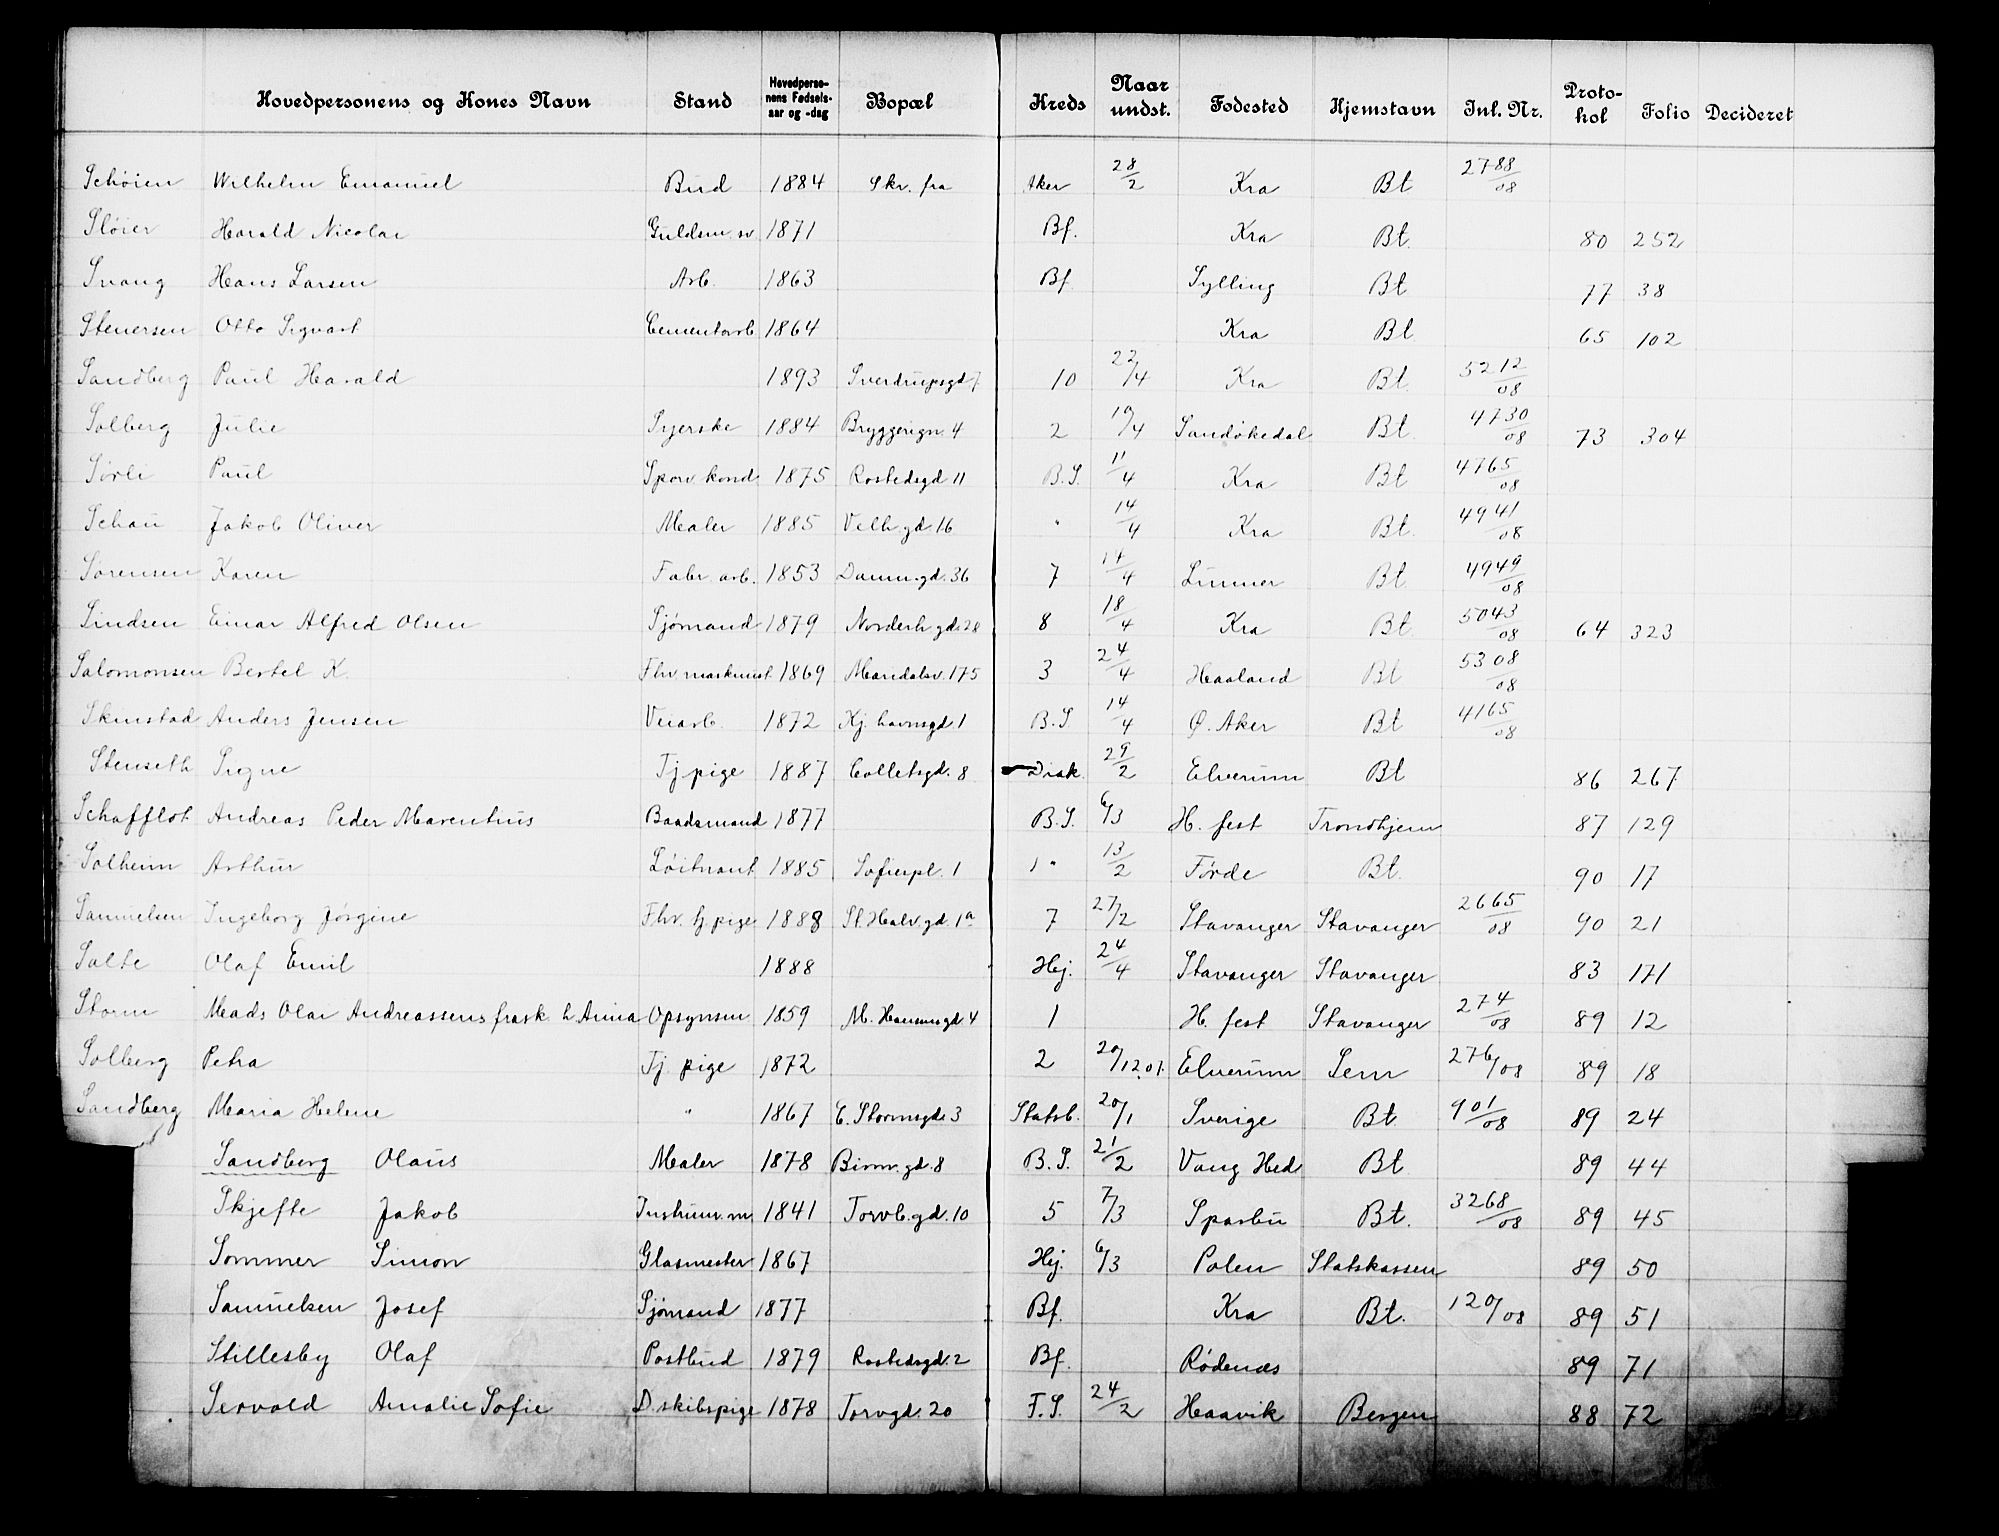 Hovedpersonens og Kones Navn Stand Hovedpersonens Fødselsaar og -dag Bopæl Kreds Naar undst. Fødested Hjemstavn Int. Nr. Protokol Folio Decideret
Schøien Wilhelm Emanuel Bud 1884 Skr. fra Aker 28/2 Kra Bt 2788/08
Sløier Harald Nicolai Guldsm. sv. 1871 Bf. Kra Bt. 80 252
Svang Hans Larsen Arb. 1863 Bf. Sylling Bt 77 38
Stenersen Otto Sigvart Cementarb 1864 Kra Bt 65 102
Sandberg Paul Harald 1893 Sverdrupsgd 7 10 22/4 Kra Bt. 5212/08
Solberg Julie Syerske 1884 Bryggerign. 4 2 10/4 Sandøkedal Bt. 4730/08 73 304
Sørli Paul Sporv. kond. 1875 Rostedsgd. 11 B.S. 11/4 Kra Bt 4765/08
Schau Jakob Oliver Maler 1885 Velh. gd. 16 " 14/4 Kra Bt. 4941/08
Sørensen Karen Fabr. arb. 1853 Damm. gd. 36 7 14/4 Lunner Bt. 4949/08
Sindsen Einar Alfred Olsen Sjømand 1879 Norderh. gd. 28 8 18/4 Kra Bt. 5043/08 64 323
Salomonsen Bertel K. Fhv. maskinist 1869 Maridalsv. 175 3 24/4 Haaland Bt 5308/08
Skinstad Anders Jensen Veiarb. 1872 Kj. havnsgd. 1 B.S. 14/4 Ø. Aker Bt 4165/08
Stenseth Signe Tj. pige 1887 Colletsgd. 8 Diak. 29/2 Elverum Bt 86 267
Schafflot Andreas Peder Marentius Baadsmand 1877 B.S. 6/3 H. fest Trondhjem 87 129
Solheim Arthur Løitnant 1885 Sofiespl. 1 1 " 13/2 Førde Bt. 90 17
Samuelsen Ingeborg Jørgine Fhv. tj. pige 1888 St. Halv. gd. 1a 7 27/2 Stavanger Stavanger 2665/08 90 21
Salte Olaf Emil 1888 Hej. 24/4 Stavanger Stavanger 83 171
Storm Mads Olai Andreassens frask. h. Anna Opsynsm 1859 M. Hansensgd. 4 1 H. fest Stavanger 274/08 89 12
Solberg Petra Tj. pige 1872 2 20/12.07. Elverum Sem 276/08 89 18
Sandberg Maria Helene " 1867 C. Stormsgd. 3 Statsb. 20/1 Sverige Bt. 901/08 89 24
Sandberg Olaus Maler 1878 Birm. gd. 8 B.S. 21/2 Vang Hed. Bt 89 44
Skjefte Jakob Instrum. m. 1841 Torvb. gd. 10 5 7/3 Sparbu Bt. 3268/08 89 45
Sommer Simon Glasmester 1867 Hej. 6/3 Polen Statskassen 89 50
Samuelsen Josef Sjømand 1877 Bf. Kra Bt. 120/08 89 51
Stillesby Olaf Postbud 1879 Rostedsgd. 2 Bf. Rødenæs 89 71
Servold Amalie Sofie D. skibspige 1878 Torvgd. 20 F.S. 24/2 Haavik Bergen 88 72